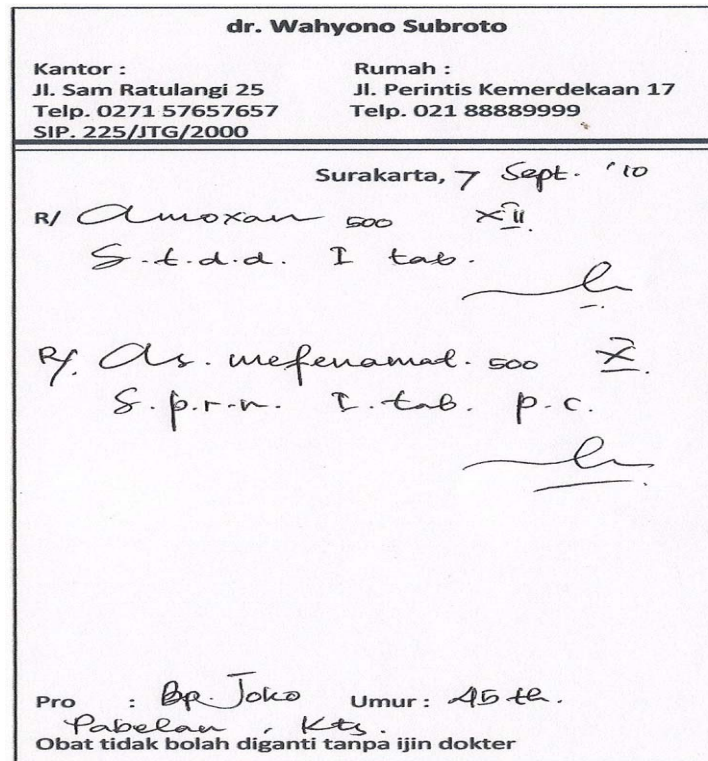 dr. Wahyono Subroto
Kantor :
Jl. Sam Ratulangi 25
Telp. 0271 57657657
SIP. 225/JTG/2000
Rumah :
Jl. Perintis Kemerdekaan 17
Telp. 021 88889999
Surakarta, 7 Sept. '10
R/ Amoxan 500 XII
S.t.d.d. I tab.
R/. As. mefenamat. 500 X.
S.p.r.n. I. tab. p.c.
Pro : Bp. Joko Umur : 45 th.
Pabelan, Kts.
Obat tidak bolah diganti tanpa ijin dokter